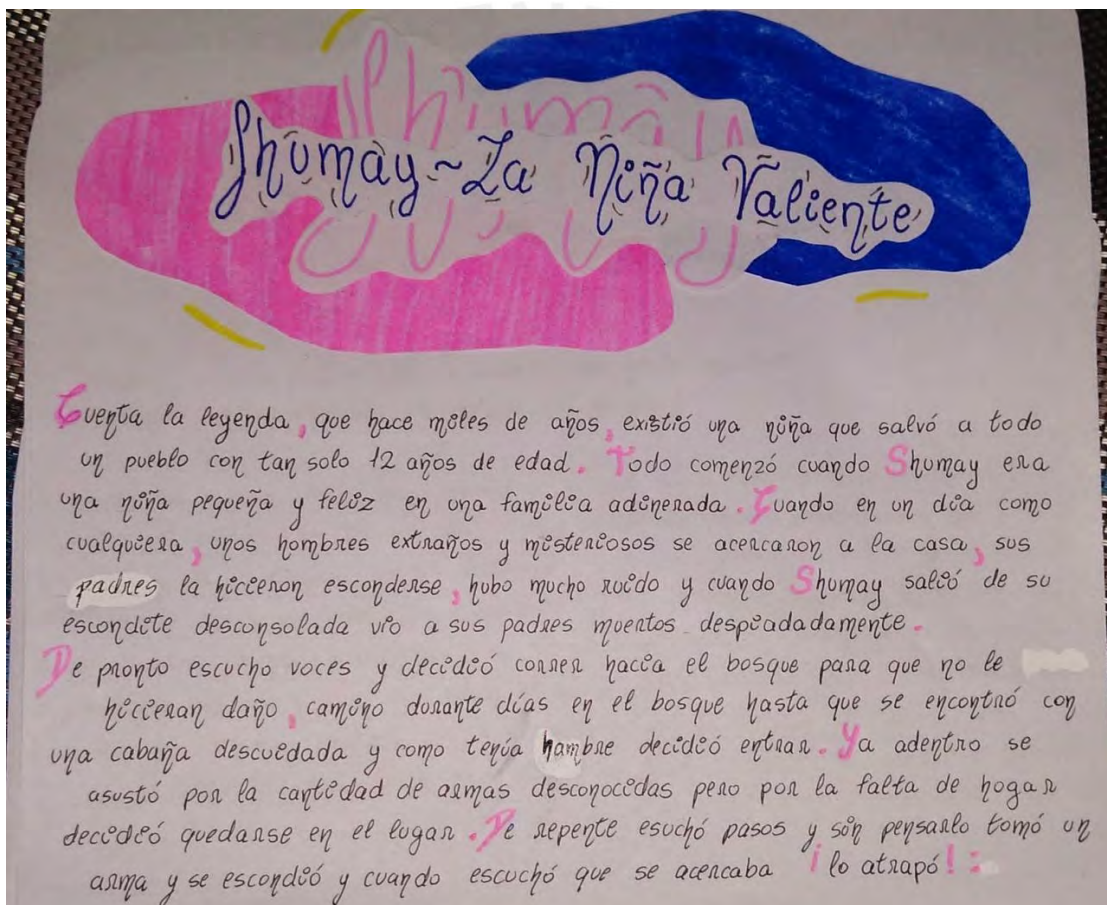 Shumay
Shumay ~ La Niña Valiente
Cuenta la leyenda, que hace miles de años, existió una niña que salvó a todo
un pueblo con tan solo 12 años de edad. Todo comenzó cuando Shumay era
una niña pequeña y feliz en una familia adinerada. Cuando en un día como
cualquiera, unos hombres extraños y misteriosos se acercaron a la casa, sus
padres la hiccieron esconderse, hubo mucho ruido y cuando Shumay salió de su
escondite desconsolada vio a sus padres muertos despiadadamente.
De pronto escucho voces y decidió correr hacia el bosque para que no le
hiccieran daño, camino durante días en el bosque hasta que se encontró con
una cabaña descuidada y como tenía hambre decidió entrar. Ya adentro se
asustó por la cantidad de armas desconocidas pero por la falta de hogar
decidió quedarse en el lugar. De repente esuchó pasos y sin pensarlo tomó un
arma y se escondió y cuando escuchó que se acercaba ¡lo atrapó! :